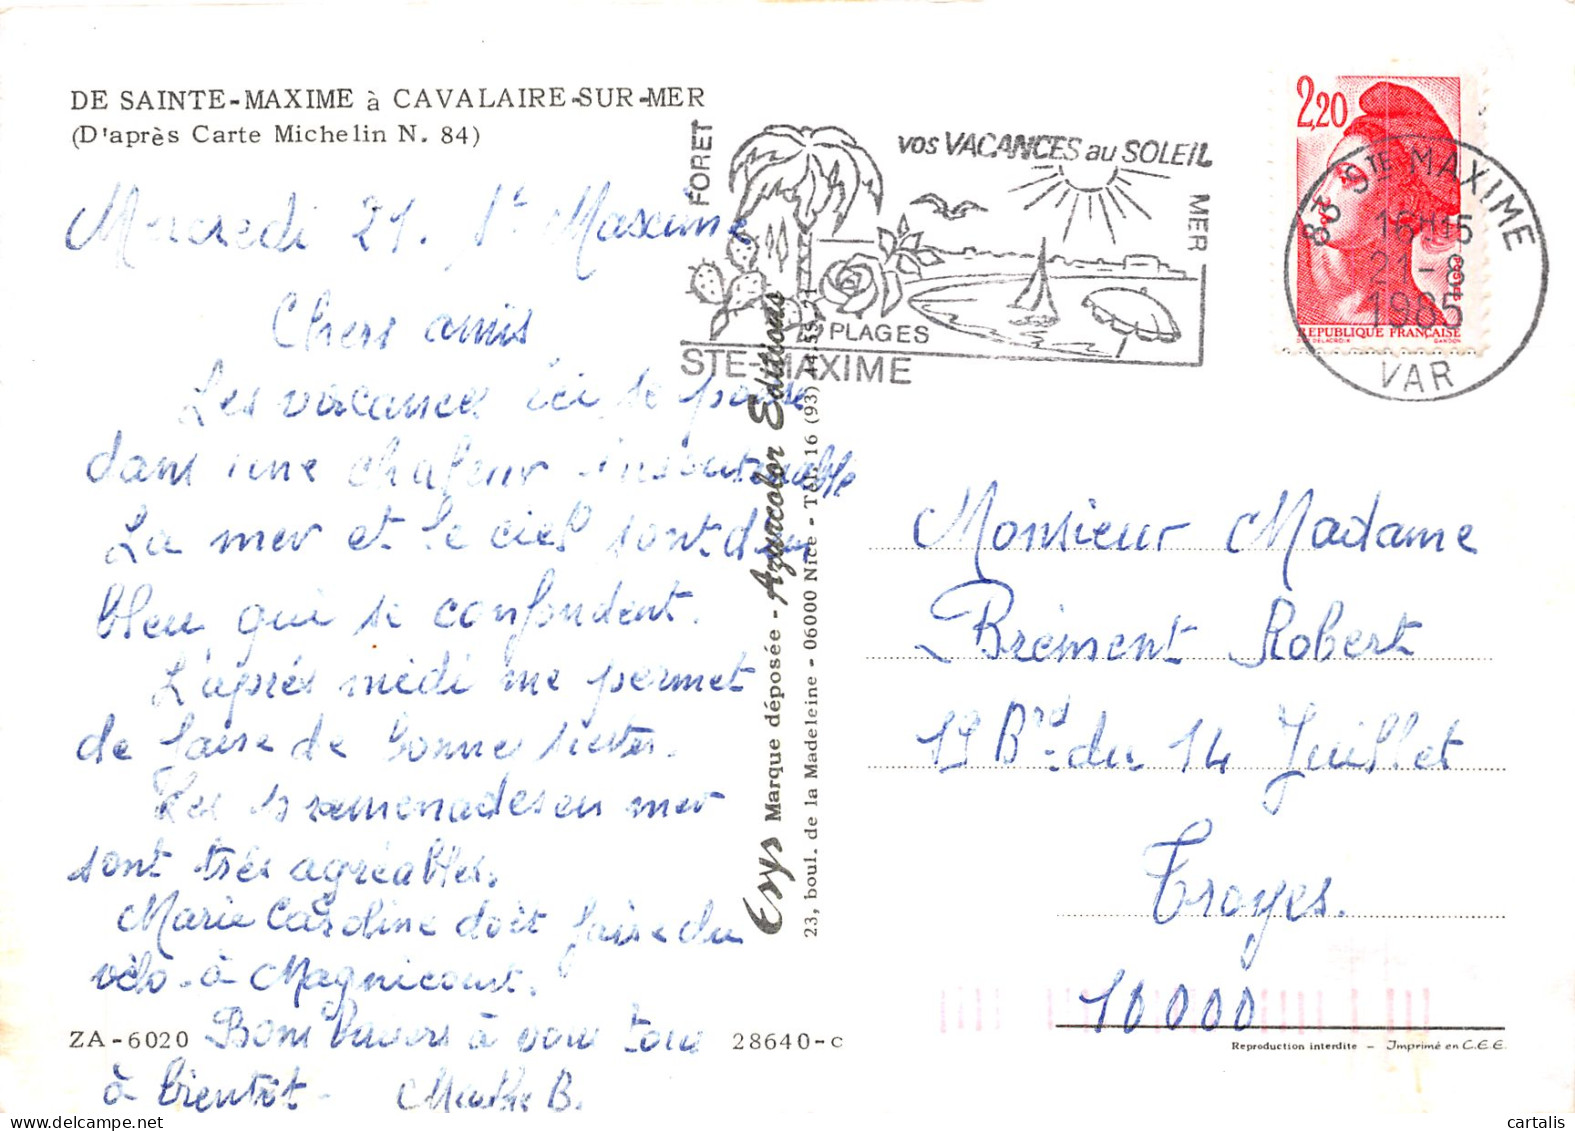 DE SAINTE-MAXIME à CAVALAIRE-SUR-MER
(D'après Carte Michelin N. 84)
Mercredi 21. Ste Maxime
Chers amis
Les vacances ici se passe
dans une chaleur insoutenable
La mer et le ciel sont d'un
bleu qui se confondent.
L'après midi me permet
de faire de bonnes siestes.
Les promenades en mer
sont très agréables.
Marie Caroline doit faire du
vélo à Magnicourt.
Bons baisers à vous tous
à bientôt - B.
ZA-6020
28640-c
Esys Marque déposée - Azurcolor Editions
23, boul. de la Madeleine - 06000 Nice - Tél. 16 (93) 44.55.21
FORET
vos VACANCES au SOLEIL
MER
PLAGES
STE-MAXIME
2,20
POSTES
REPUBLIQUE FRANÇAISE
D'AP. DELACROIX
GANDON
83 STE MAXIME
16H15
21-8
1985
VAR
Monsieur Madame
Brément Robert
19 Brd. du 14 Juillet
Troyes.
10000
Reproduction interdite - Imprimé en C.E.E.
cartalis